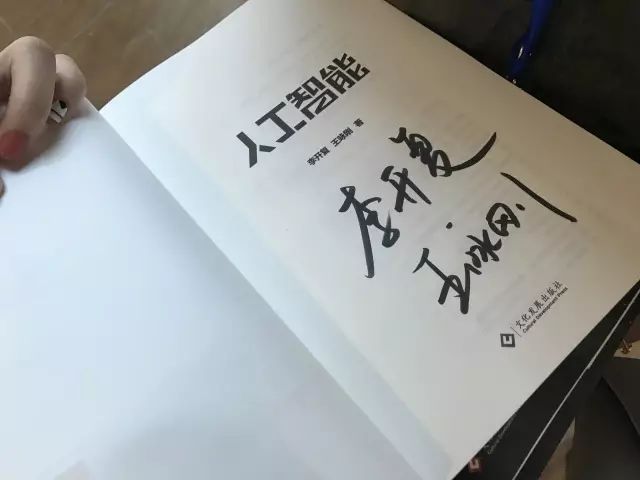 人工智能
李开复 王咏刚 著
李开复
王咏刚
文化发展出版社
Cultural Development Press